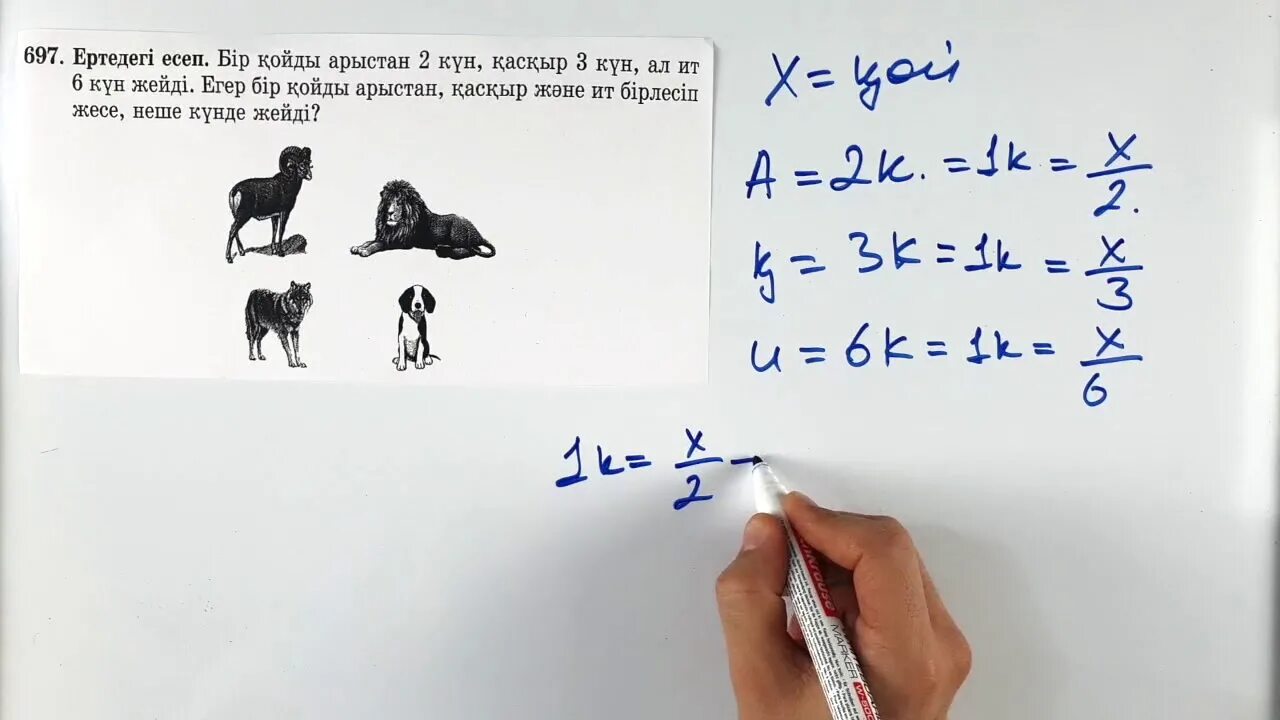 697. Ертедегі есеп. Бір қойды арыстан 2 күн, қасқыр 3 күн, ал ит
6 күн жейді. Егер бір қойды арыстан, қасқыр және ит бірлесіп
жесе, неше күнде жейді?
X = қой
A = 2к. = 1к = x/2.
қ = 3к = 1к = x/3
и = 6к = 1к = x/6
1к = x/2 -
MARKER